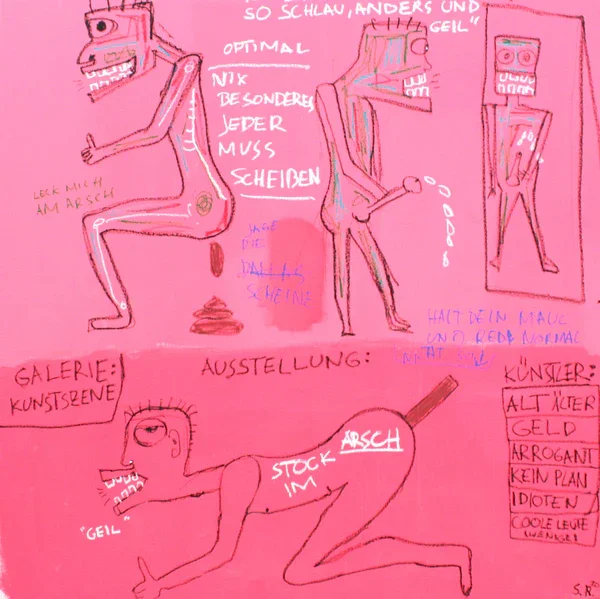 SO SCHLAU, ANDERS UND
GEIL"
OPTIMAL
NIX
BESONDERES
JEDER
MUSS
SCHEIßEN
LECK MICH
AM ARSCH
JAGE
DIE
DALLAS
SCHEINE
HALT DEIN MAUL
UND REDE NORMAL
GALERIE:
KUNSTSZENE
AUSSTELLUNG:
KÜNSTLER:
ALT ÄLTER
GELD
ARROGANT
KEIN PLAN
IDIOTEN
COOLE LEUTE
(WENIGE)
STOCK
IM
ARSCH
"GEIL"
S.R.